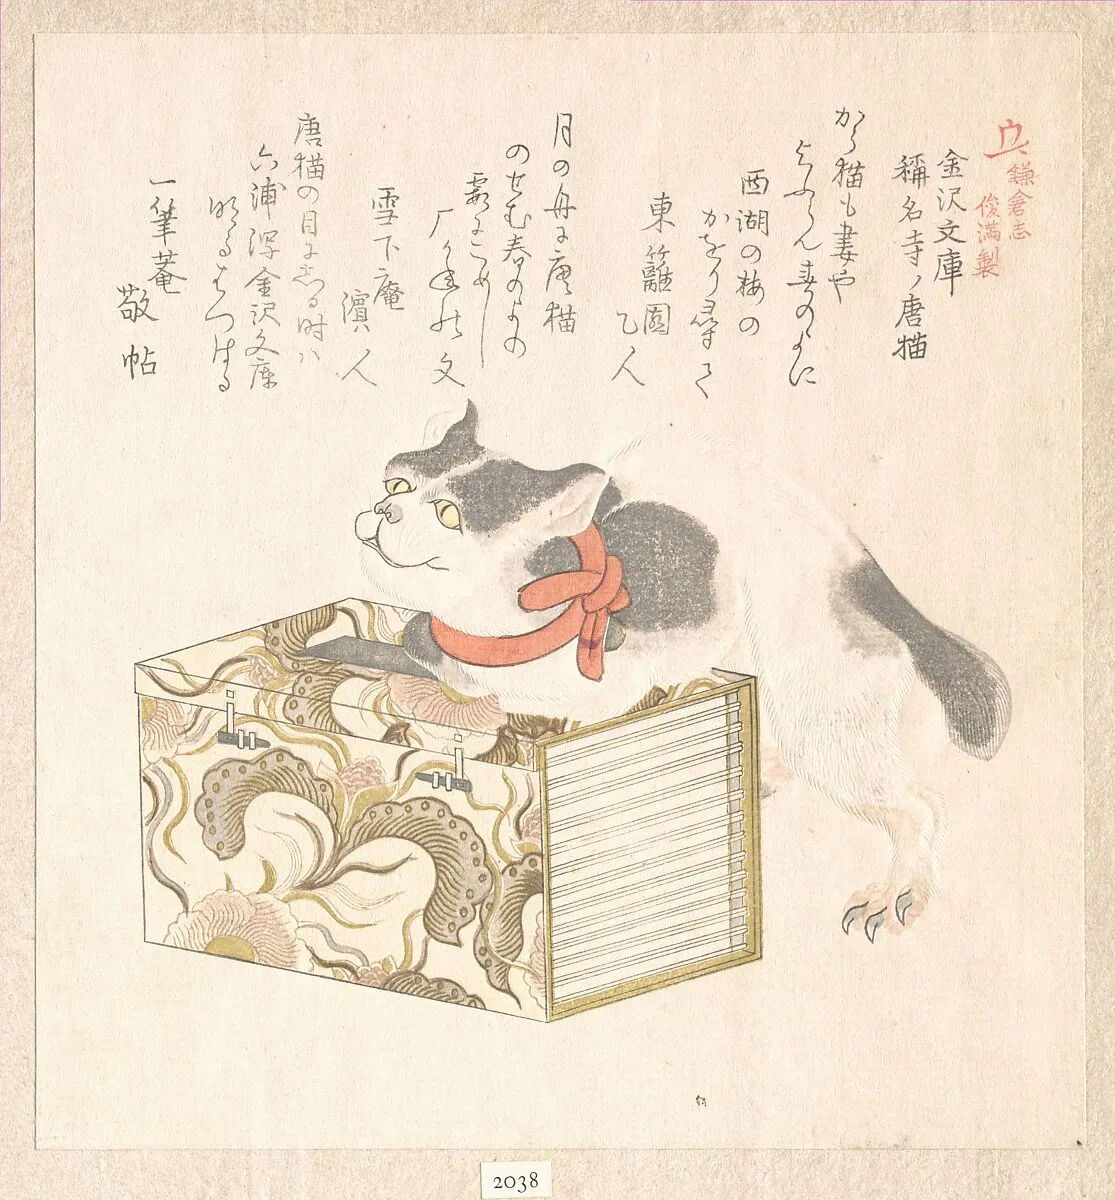 鎌倉志
俊満製
金沢文庫
稱名寺ノ唐猫
から猫も妻や
よふらん春のよに
西湖の梅の
かをり尋て
東籬園
乙人
月の舟に唐猫
のせむ春のよの
霞にこめし
文
雪下庵
濱人
唐猫の目にしる時ハ
六浦 金沢文庫
一筆菴
敬帖
2038